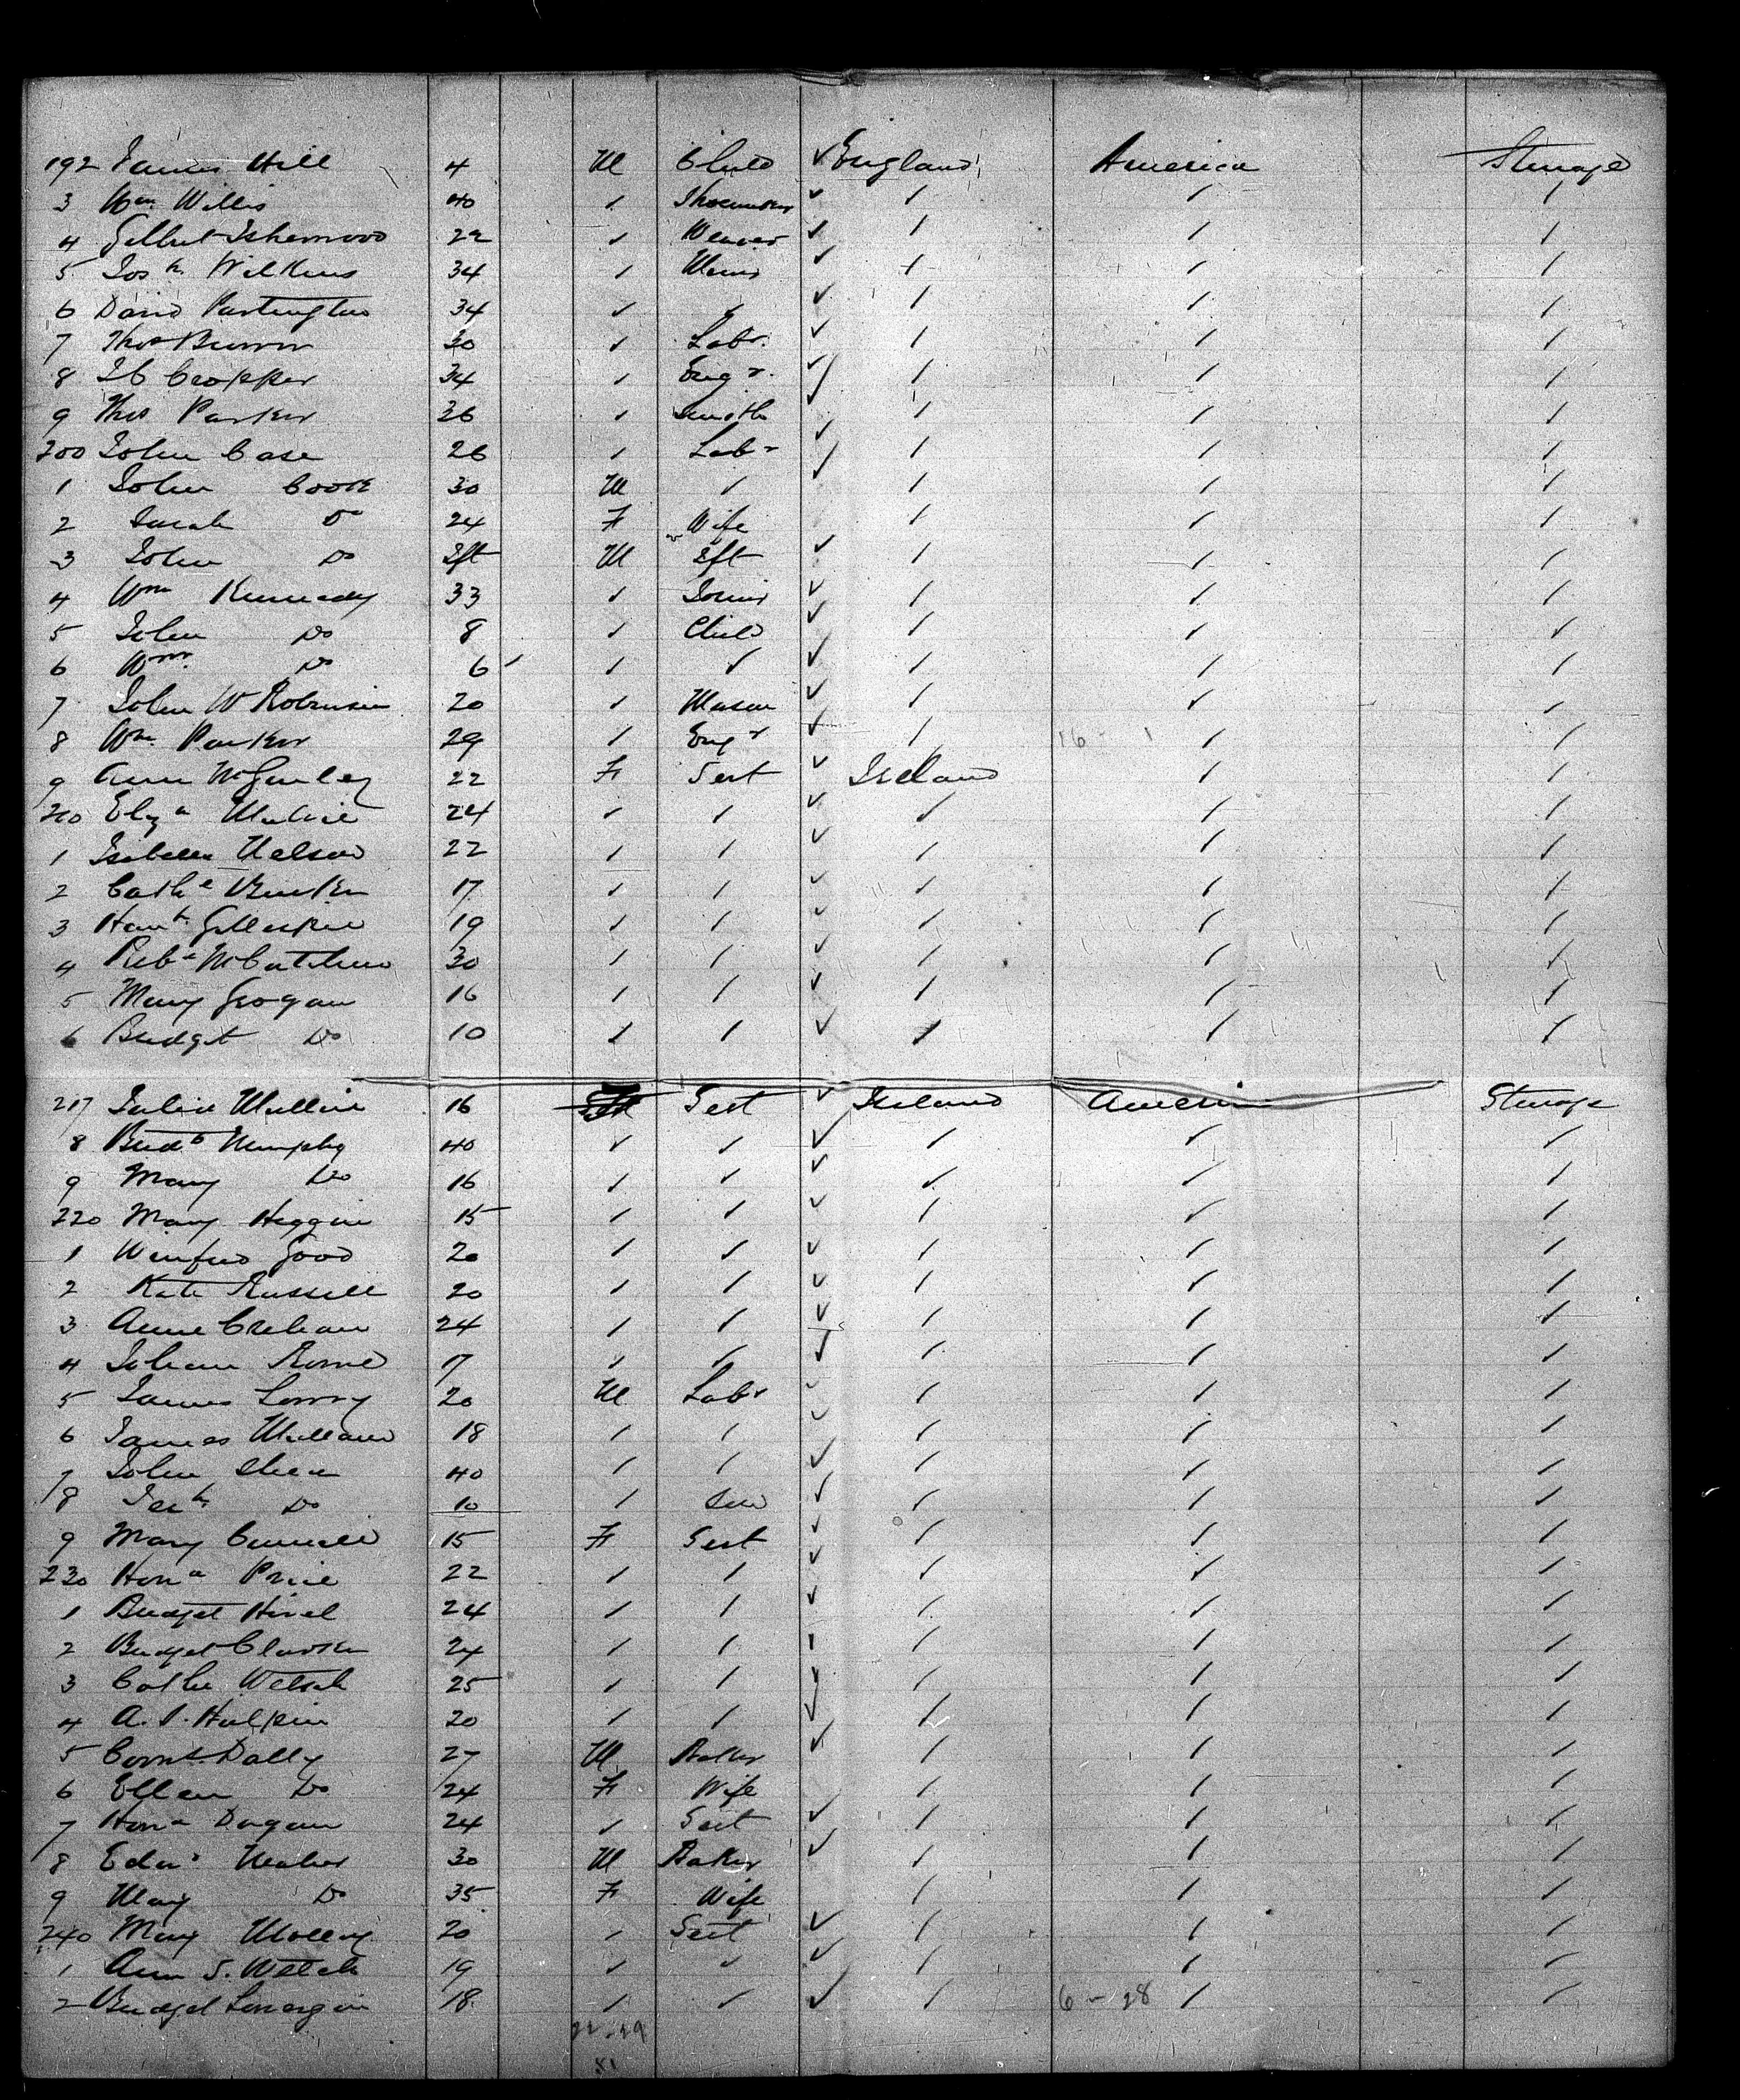 192 James Hill 4 M Child ✓ England America Steerage
3 Wm Willis 40 ✓ Shoemaker ✓ / / /
4 Gilbert Isherwood 22 ✓ Weaver ✓ / / /
5 Josh Wilkins 34 / ✓ / / /
6 David Partington 34 ✓ / ✓ / / /
7 Thos Brown 30 ✓ Labr. ✓ / / /
8 Cropper 34 / Engr. ✓ / / /
9 Thos Parker 36 / Smith ✓ / / /
200 John Case 26 / Labr ✓ / / /
1 John Cook 30 M / ✓ / / /
2 Sarah Do 24 F Wife / / /
3 John Do Ift M Ift ✓ / / /
4 Wm Kennedy 33 / Joiner ✓ / / /
5 John Do 8 / Child ✓ / / /
6 Wm. Do 6 / ✓ ✓ / / /
7 John W Robinson 20 / Mason ✓ / / /
8 Wm. Parker 29 / Engr ✓ / 16 - 1 / /
9 Ann McGinley 22 F Sert ✓ Ireland / /
210 Elza 24 / / ✓ / / /
1 Isabella Nelson 22 / / ✓ / / /
2 Cathe 17 / / ✓ / / /
3 Hanh Gillespie 19 / / ✓ / / /
4 Reba McCutcheon 30 / / ✓ / / /
5 Mary Grogan 16 / / ✓ / / /
6 Bridget Do 10 / / ✓ / / /
217 Julia Mullin 16 Sert ✓ Ireland America Steerage
8 Bridt Murphy 40 ✓ / ✓ / / /
9 Mary Do 16 / / ✓ / / /
220 Mary Heggin 15 / / ✓ / / /
1 Winifred Good 20 / / ✓ / / /
2 Kate Russell 20 / / ✓ / / /
3 Anne Crehan 24 / / ✓ / / /
4 17 / / ✓ / / /
5 James Lowry 20 M Labr ✓ / / /
6 James 18 / / ✓ / / /
7 John Shea 40 / / ✓ / / /
8 Do 10 / Son ✓ / / /
9 Mary 15 F Sert ✓ / / /
230 Hona Price 22 / / ✓ / / /
1 Bridget 24 / / ✓ / / /
2 Bridget Clarke 24 / / / / / /
3 Cathe Welsh 25 / / ✓ / / /
4 A. Halpin 20 / / ✓ / / /
5 Corns. Dally 27 M Baker ✓ / / /
6 Ellen Do 24 F Wife / / /
7 Hona Dugan 24 / Sert ✓ / / /
8 Edwd Meaher 30 M Baker ✓ / / /
9 Mary Do 35 F Wife / / /
240 Mary Molloy 20 / Sert ✓ / / /
1 Ann S. Welch 19 ✓ ✓ ✓ / / /
2 Bridget Lonergan 18 / / ✓ / 6 - 28 / /